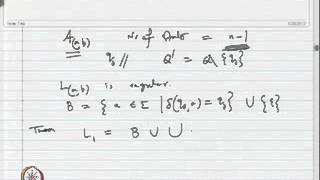 A(a,b) Nr of States = n-1
q₀ // Q' = Q \ {q₀}
L(a,b) is regular.
B = { a ∈ Σ | δ(q₀, a) = q₀ } ∪ {ε}
Then L₁ = B ∪ ∪